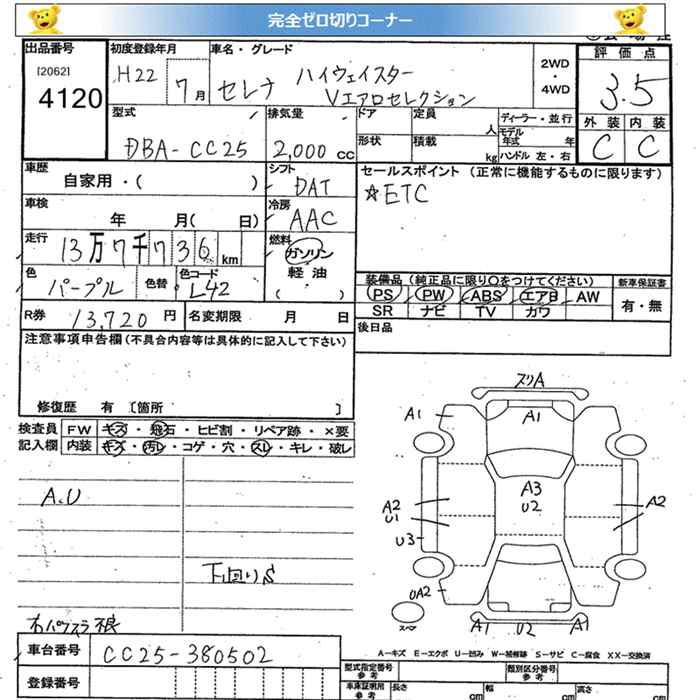 完全ゼロ切りコーナー
出品番号 初度登録年月 車名・グレード 評価点
[2062] H22 7月 セレナ ハイウェイスター 2WD
4120 Vエアロセレクション ・ 3.5
4WD
型式 排気量 ドア 定員 人 ディーラー・並行 外装 内装
DBA-CC25 2,000cc 形状 積載 kg モデル年式 年 C C
ハンドル 左・右
車歴 シフト セールスポイント(正常に機能するものに限ります)
自家用・( ) DAT ☆ETC
車検 冷房
年 月( 日) AAC
走行 燃料
13万7千736km ガソリン
軽油
( )
色 色替 色コード 装備品(純正品に限り○をつけてください) 新車保証書
パープル L42 PS PW ABS エアB AW 有・無
SR ナビ TV カワ
R券 13,720円 名変期限 月 日 後日品
注意事項申告欄(不具合内容等は具体的に記入して下さい)
修復歴 有 〔箇所 〕
検査員 FW キズ・飛石・ヒビ割・リペア跡・×要
記入欄 内装 キズ・汚レ・コゲ・穴・スレ・キレ・破レ
A.U
下回りS
スリA
A1 A1
A3
U2
A2 A2
U1
U3
UA2
スペア A1 U2 A1
A-キズ E-エクボ U-凹み W-補修跡 S-サビ C-腐食 XX-交換済
車台番号 CC25-380502
登録番号
型式指定番号 参考 類別区分番号 参考
車庫証明用 参考 長さ cm 幅 cm 高さ cm